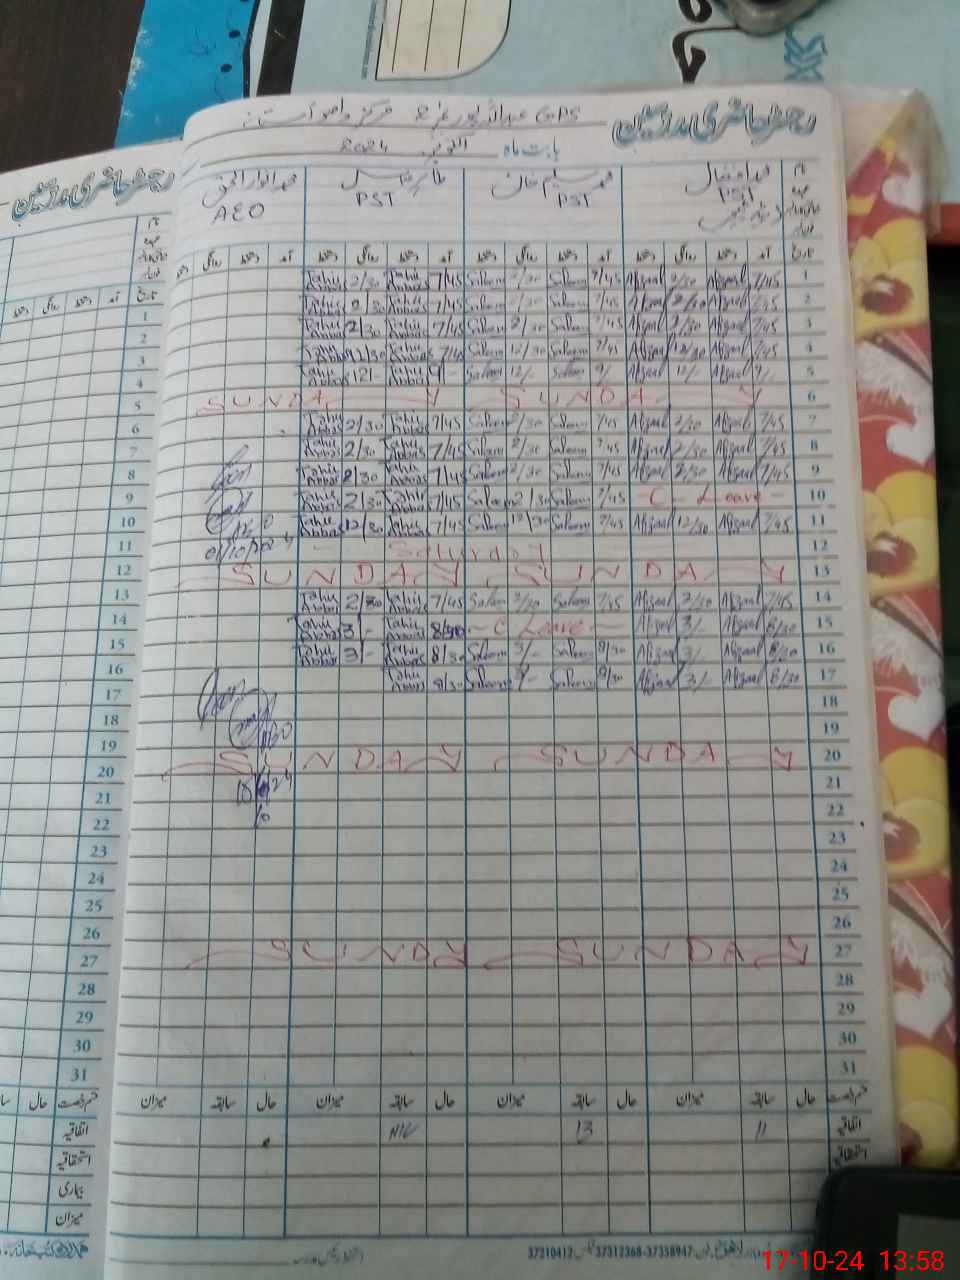 رجسٹر حاضری مدرسین
بابت ماہ اکتوبر 2024
محمد افضل PST
محمد سلیم خان PST
PST
محمد انوار الحق AEO
تاریخ آمد دستخط روانگی دستخط آمد دستخط روانگی دستخط آمد دستخط روانگی دستخط آمد دستخط روانگی
1 7/45 Afzaal 2/30 Afzaal 7/45 Saleem 2/30 Saleem 7/45 Tahir Abbas 2/30 Tahir Abbas
2 7/45 Afzaal 2/30 Afzaal 7/45 Saleem 2/30 Saleem 7/45 Tahir Abbas 2/30 Tahir Abbas
3 7/45 Afzaal 2/30 Afzaal 7/45 Saleem 2/30 Saleem 7/45 Tahir Abbas 2/30 Tahir Abbas
4 7/45 Afzaal 12/30 Afzaal 7/45 Saleem 12/30 Saleem 7/45 Tahir Abbas 12/30 Tahir Abbas
5 9/- Afzaal 12/- Afzaal 9/ Saleem 12/- Saleem 9/- Tahir Abbas 12/- Tahir Abbas
6 SUNDAY SUNDAY
7 7/45 Afzaal 2/30 Afzaal 7/45 Saleem 2/30 Saleem 7/45 Tahir Abbas 2/30 Tahir Abbas
8 7/45 Afzaal 2/30 Afzaal 7/45 Saleem 2/30 Saleem 7/45 Tahir Abbas 2/30 Tahir Abbas
9 7/45 Afzaal 2/30 Afzaal 7/45 Saleem 2/30 Saleem 7/45 Tahir Abbas 2/30 Tahir Abbas
10 - C - Leave - 7/45 Saleem 2/30 Saleem 7/45 Tahir Abbas 2/30 Tahir Abbas
11 7/45 Afzaal 12/30 Afzaal 7/45 Saleem 12/30 Saleem 7/45 Tahir Abbas 12/30 Tahir Abbas
12 Saturday
13 SUNDAY SUNDAY
14 7/45 Afzaal 2/30 Afzaal 7/45 Saleem 2/30 Saleem 7/45 Tahir Abbas 2/30 Tahir Abbas
15 8/30 Afzaal 3/- Afzaal - C Leave - 8/30 Tahir Abbas 3/- Tahir Abbas
16 8/30 Afzaal 3/- Afzaal 8/30 Saleem 3/- Saleem 8/30 Tahir Abbas 3/- Tahir Abbas
17 8/30 Afzaal 3/- Afzaal 8/30 Saleem Saleem 8/30 Tahir Abbas
18
19
20 SUNDAY SUNDAY
21
22
23
24
25
26
27 SUNDAY SUNDAY
28
29
30
31
قسم رخصت حال سابقہ میزان حال سابقہ میزان حال سابقہ میزان حال سابقہ میزان
اتفاقیہ 11 13 NIL
استحقاقیہ
37310412 37312368-37358947
رجسٹر حاضری مدرسین
تاریخ آمد دستخط روانگی دستخط
1
2
3
4
5
6
7
8
9
10
11
12
13
14
15
16
17
18
19
20
21
22
23
24
25
26
27
28
29
30
31
قسم رخصت حال
اتفاقیہ
استحقاقیہ
بیماری
میزان
17-10-24 13:58